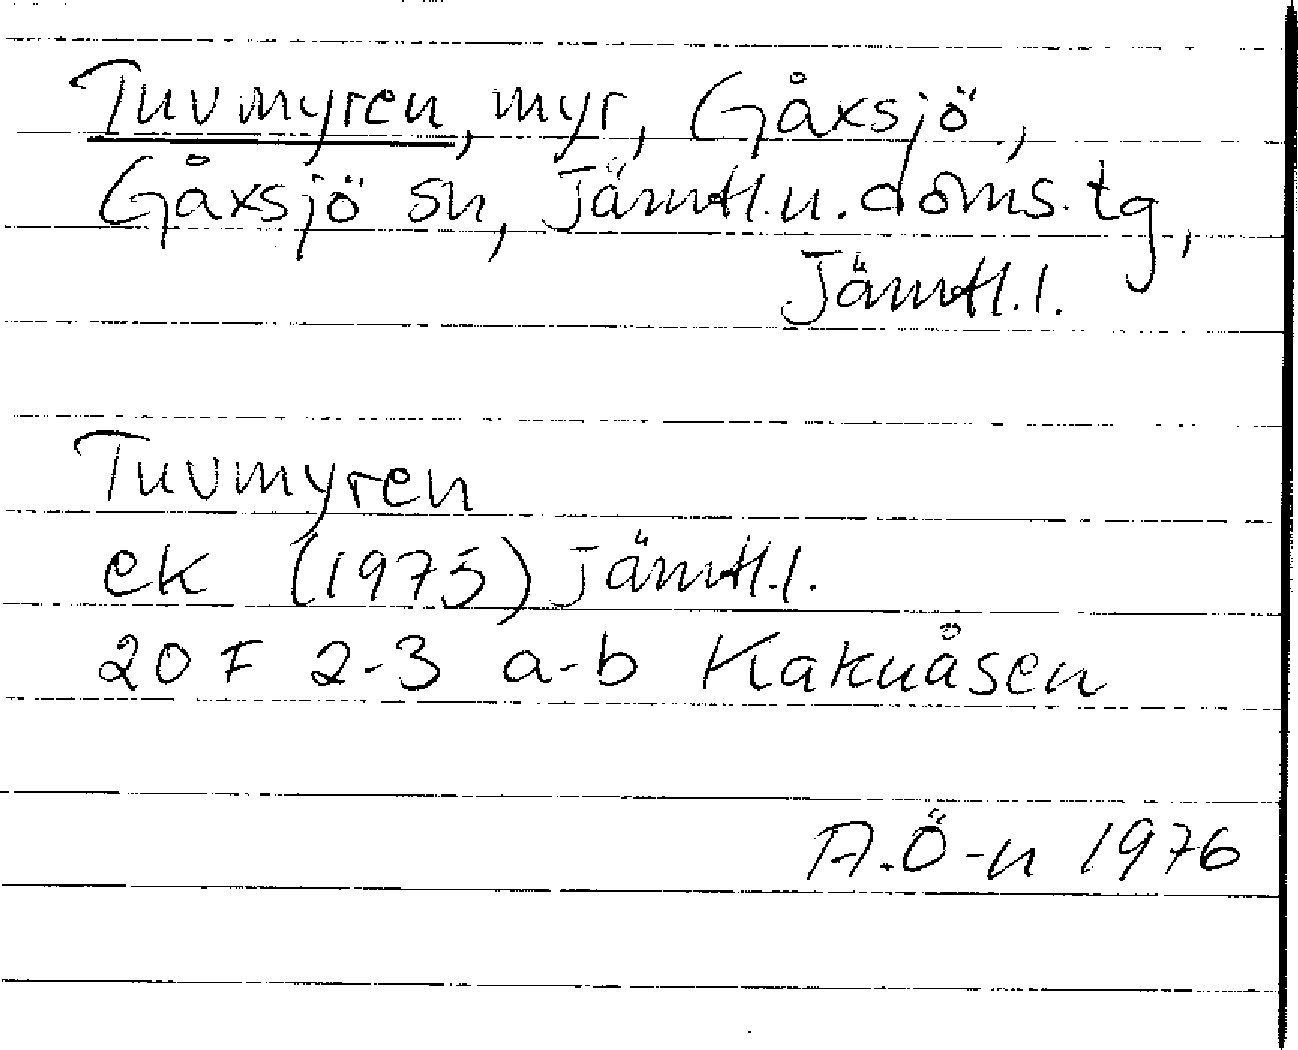 Tuvmyren, myr, Gåxsjö,
Gåxsjö sn, Jämtl.n.doms.tg,
Jämtl.l.
Tuvmyren
ek (1975) Jämtl.l.
20 F 2-3 a-b Kakuåsen
A.Ö-n 1976